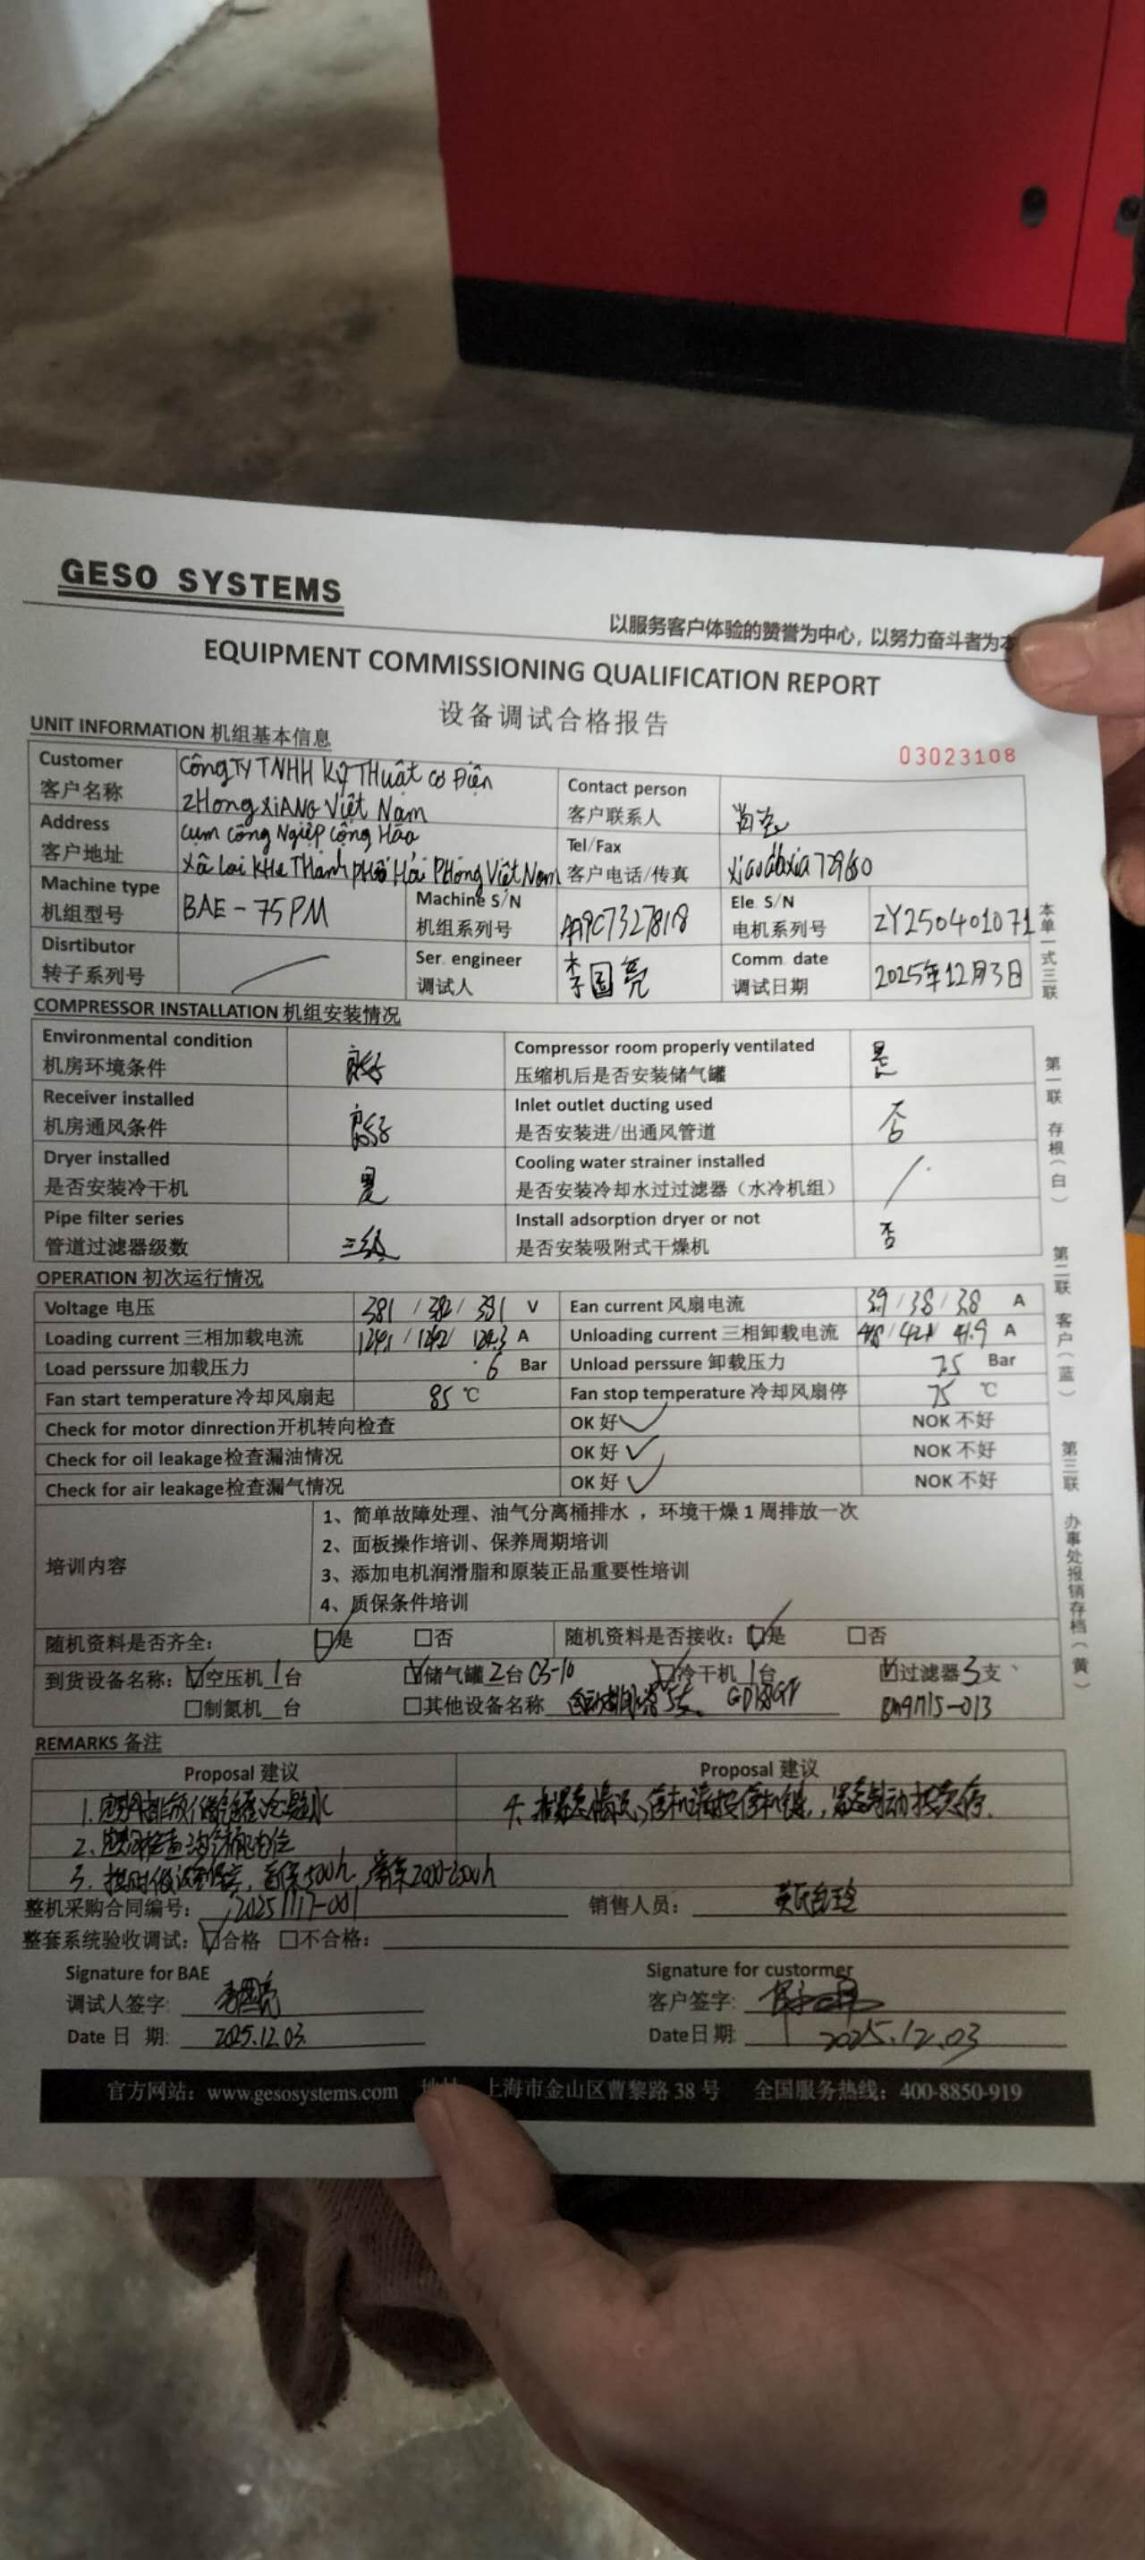 GESO SYSTEMS
以服务客户体验的赞誉为中心，以努力奋斗者为本
EQUIPMENT COMMISSIONING QUALIFICATION REPORT
设备调试合格报告
UNIT INFORMATION 机组基本信息
03023108
Customer 客户名称 CôngTy TNHH Kỹ THuật cơ Điện ZHong XiANG Việt Nam
Contact person 客户联系人
Address 客户地址 cụm công Ngiệp Cộng Hào Xã Lai KHê THành pHố Hải PHòng Việt Nam
Tel/Fax 客户电话/传真
Machine type 机组型号 BAE-75PM
Machine S/N 机组系列号
Ele. S/N 电机系列号 ZY250401071
Disrtibutor 转子系列号
Ser. engineer 调试人 李国亮
Comm. date 调试日期 2025年12月3日
COMPRESSOR INSTALLATION 机组安装情况
Environmental condition 机房环境条件 良好
Compressor room properly ventilated 压缩机后是否安装储气罐 是
Receiver installed 机房通风条件 良好
Inlet outlet ducting used 是否安装进/出通风管道 否
Dryer installed 是否安装冷干机 是
Cooling water strainer installed 是否安装冷却水过过滤器（水冷机组） /
Pipe filter series 管道过滤器级数 三级
Install adsorption dryer or not 是否安装吸附式干燥机 否
OPERATION 初次运行情况
Voltage 电压 381 / 382 / 381 V
Ean current 风扇电流 3.9 / 3.8 / 3.8 A
Loading current 三相加载电流 A
Unloading current 三相卸载电流 41.9 A
Load perssure 加载压力 6 Bar
Unload perssure 卸载压力 7.5 Bar
Fan start temperature 冷却风扇起 85 ℃
Fan stop temperature 冷却风扇停 75 ℃
Check for motor dinrection 开机转向检查 OK 好 ✓ NOK 不好
Check for oil leakage 检查漏油情况 OK 好 ✓ NOK 不好
Check for air leakage 检查漏气情况 OK 好 ✓ NOK 不好
培训内容
1、简单故障处理、油气分离桶排水，环境干燥 1 周排放一次
2、面板操作培训、保养周期培训
3、添加电机润滑脂和原装正品重要性培训
4、质保条件培训
随机资料是否齐全： ☑是 □否 随机资料是否接收： ☑是 □否
到货设备名称： ☑空压机 1台 ☑储气罐 2台 C3-10 ☑冷干机 1台 ☑过滤器 3支
□制氮机 台 □其他设备名称
REMARKS 备注
Proposal 建议 Proposal 建议
整机采购合同编号： 20251117-001 销售人员：
整套系统验收调试： ☑合格 □不合格：
Signature for BAE 调试人签字: 李国亮
Signature for custormer 客户签字:
Date 日 期: 2025.12.03
Date 日期: 2025.12.03
官方网站：www.gesosystems.com 上海市金山区曹黎路 38 号 全国服务热线：400-8850-919
本单一式三联 第一联 存根（白） 第二联 客户（蓝） 第三联 办事处报销存档（黄）